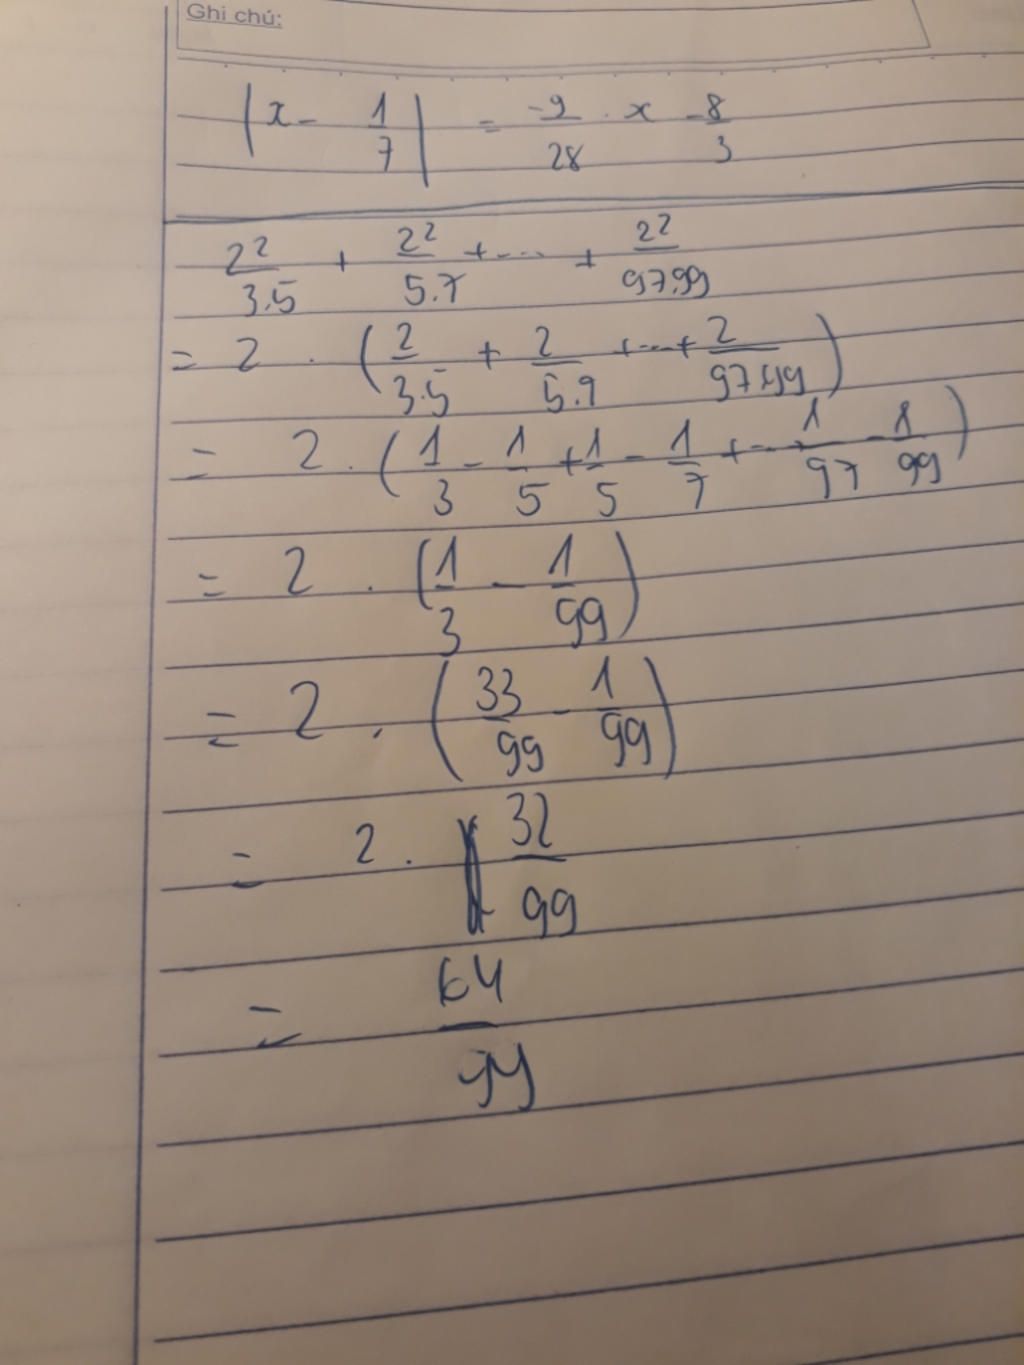 Ghi chú:
|x - 1/7| = -9/28 . x - 8/3
2²/3.5 + 2²/5.7 + ... + 2²/97.99
= 2 . (2/3.5 + 2/5.9 + ... + 2/97.99)
= 2 . (1/3 - 1/5 + 1/5 - 1/7 + ... + 1/97 - 1/99)
= 2 . (1/3 - 1/99)
= 2 . (33/99 - 1/99)
= 2 . 32/99
= 64/99